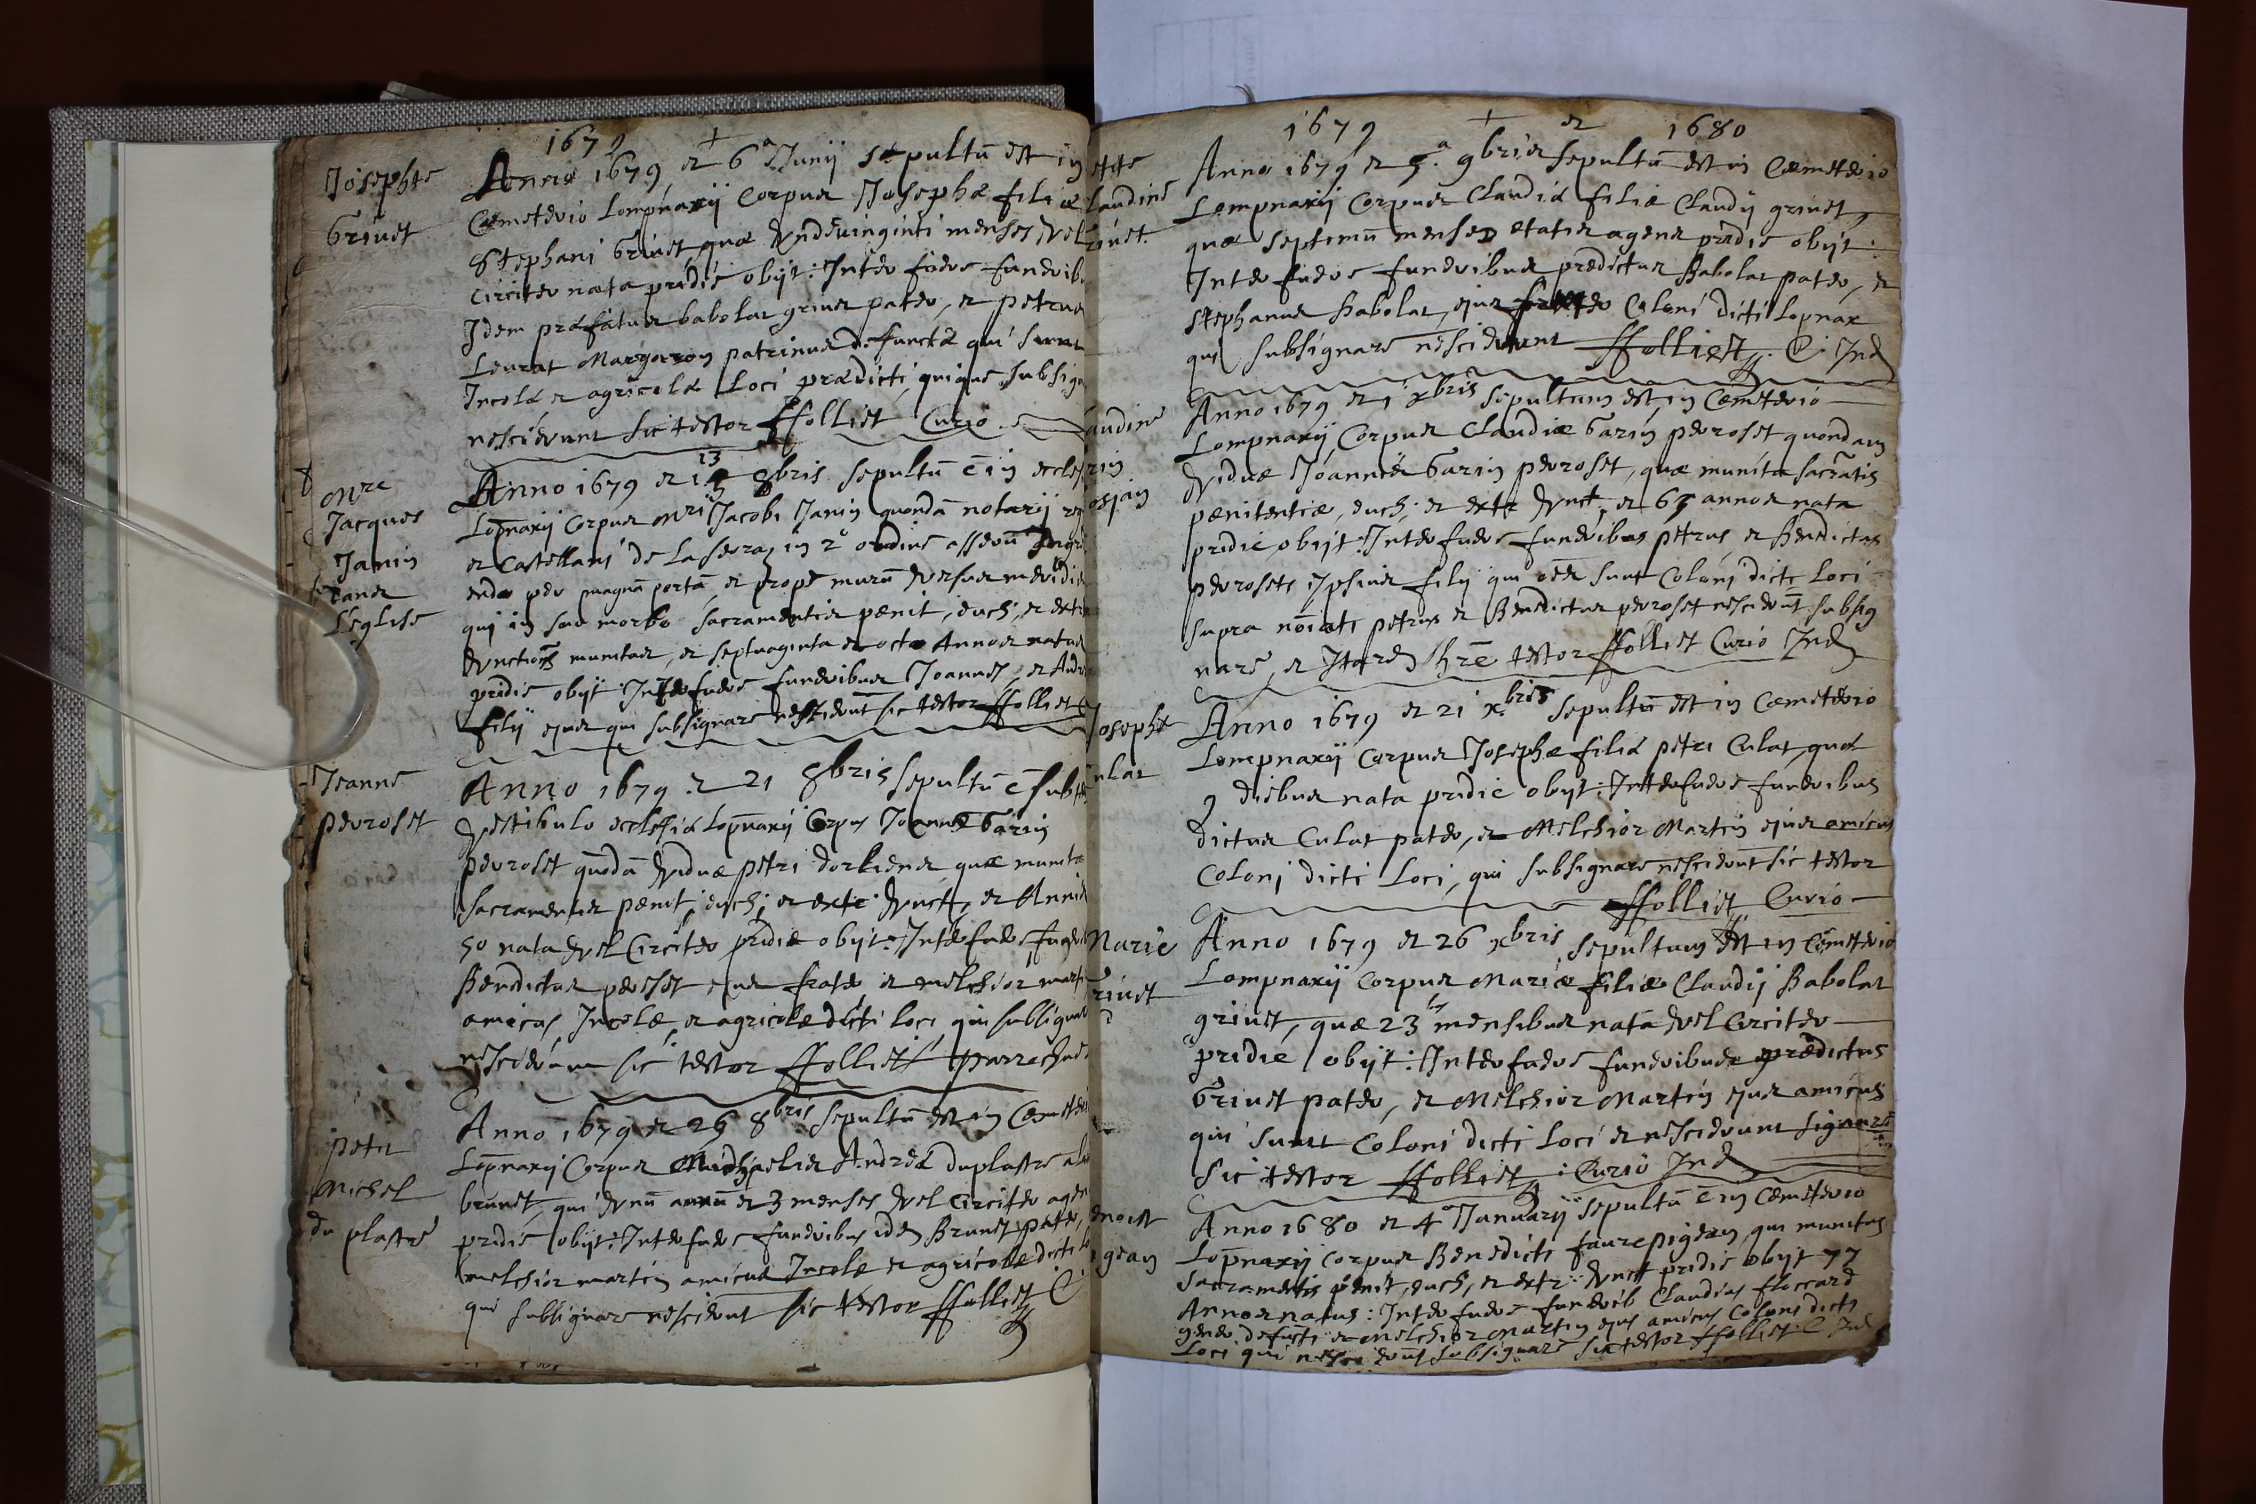 1679 +
Josephte
Grivet
Anno 1679 et 6a Junij sepultū est in
Cæmeterio Lompnaxij Corpus Josephæ filiæ
Stephani Grivet, quæ undeviginti menses vel
circiter nata pridie obijt: Interfuere funerib
Idem præfatus babolat grivet pater, et petrus
Leurat Margarron patrinus defunctæ qui sunt
Incolæ et agricolæ Loci prædicti, quique subsig
nescierunt sic testor ffolliet Curio
Mre
Jacques
Janin
dans
L'églisse
Anno 1679 et 13 8bris sepultū ē in eccle
Lopnaxij Corpus Mri Jacobi Janin quondā notarij
et Castellani de Laserraz in 2o ordine
per magnā portā, et prope murū versus meridi
qui in suo morbo sacramentis pænit, euch, et extr
Unctionis munitus, et septuaginta et octo Annos natus
pridie obijt Interfuere funeribus Joannes, et Andr
filij ejus qui subsignare nescierūt sic testor ffolliet
Jeanne
perroset
Anno 1679 et 21 8bris sepultū ē sub
Vestibulo ecclesiæ Lopnaxij Corpus Joannæ Garin
perroset quōdā viduæ petri dorliens quæ munita
sacramentis pænit, euch, et extr: Unct, et Annis
50 nata vel Circiter pridie obijt: Interfuere fune
Benedictus peroset ejus frater et melchior marti
amicus Incolæ, et agricolæ dicti loci, qui subsignare
nescierunt sic testor ffolliet parrochus
petit
Michel
du plastre
Anno 1679 et 25 8bris sepultū est in Cæmeteri
Lopnaxij Corpus Michaelis Andreæ duplastre al
brunet, qui unū annū et 3 menses vel Circiter agens
pridie obijt: Interfuere funeribus idem Brunet pater,
melchior martin amicus Incolæ et agricolæ dicti
qui subsignare nescierunt sic testor ffolliet C
1679 + et 1680
ette
laudine
rivet.
Anno 1679 et 5.a 9bris sepultū est in Cæmeterio
Lompnaxij Corpus Claudiæ filiæ Claudij grivet,
quæ septimū mensem etatis agens pridie obijt:
Interfuere funeribus prædictus Babolat pater, et
stephanus babolat, ejus frater Coloni dicti Lopnax
qui subsignare nescierunt ffolliet. C Ind
audine
rin
Anno 1679 et 1 xbris sepultum est in Cæmeterio
Lompnaxij Corpus Claudiæ Garin peroset quondam
Viduæ Joannis Garin peroset, quæ munita sacratis
pænitentiæ, euch; et extr Unct, et 65 annos nata
pridie obijt: Interfuere funeribus petrus, et Benedictus
peroset ipsius filij qui oēs sunt Coloni dicti Loci
supra nōiati petrus et Benedictus peroset nescierūt subsig
nare, et testor ffolliet Curio Ind
Josephte
ulat
Anno 1679 et 21 xbris sepultū est in Cæmeterio
Lompnaxij Corpus Josephæ filiæ petri Culat, quæ
9 diebus nata pridie obijt: Interfuere funeribus
dictus Culat pater, et Melchior Martin ejus amicus
Coloni dicti Loci, qui subsignare nescierūt sic testor
ffolliet Curio
Marie
rivet
Anno 1679 et 26 xbris sepultum est in Cæmeterio
Lompnaxij Corpus Mariæ filiæ Claudij Babolat
grivet, quæ 23 mensibus nata vel Circiter
pridie obijt: Interfuere funeribus prædictus
Grivet pater, et Melchior Martin ejus amicus
qui sunt Coloni dicti Loci et nescierunt signare
sic testor ffolliet: Curio Ind
enoist
igean
Anno 1680 et 4a Januarij sepultū ē in Cæmeterio
Lopnaxij Corpus Benedicti faure pigean, qui munitus
sacramentis pænit, euch, et extr: Unct pridie obijt 77
Annos natus: Interfuere funerib Claudius floccard
gener defuncti et Melchior Martin ejus amicus Coloni dicti
Loci qui nescierūt subsignare sic testor ffolliet C Ind